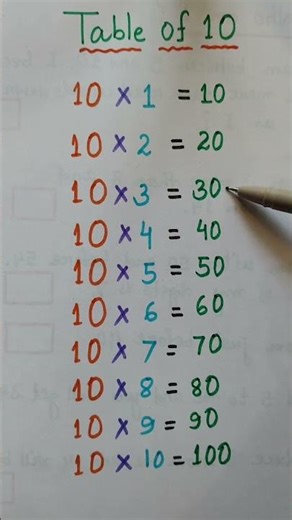 Table of 10
10 × 1 = 10
10 × 2 = 20
10 × 3 = 30
10 × 4 = 40
10 × 5 = 50
10 × 6 = 60
10 × 7 = 70
10 × 8 = 80
10 × 9 = 90
10 × 10 = 100